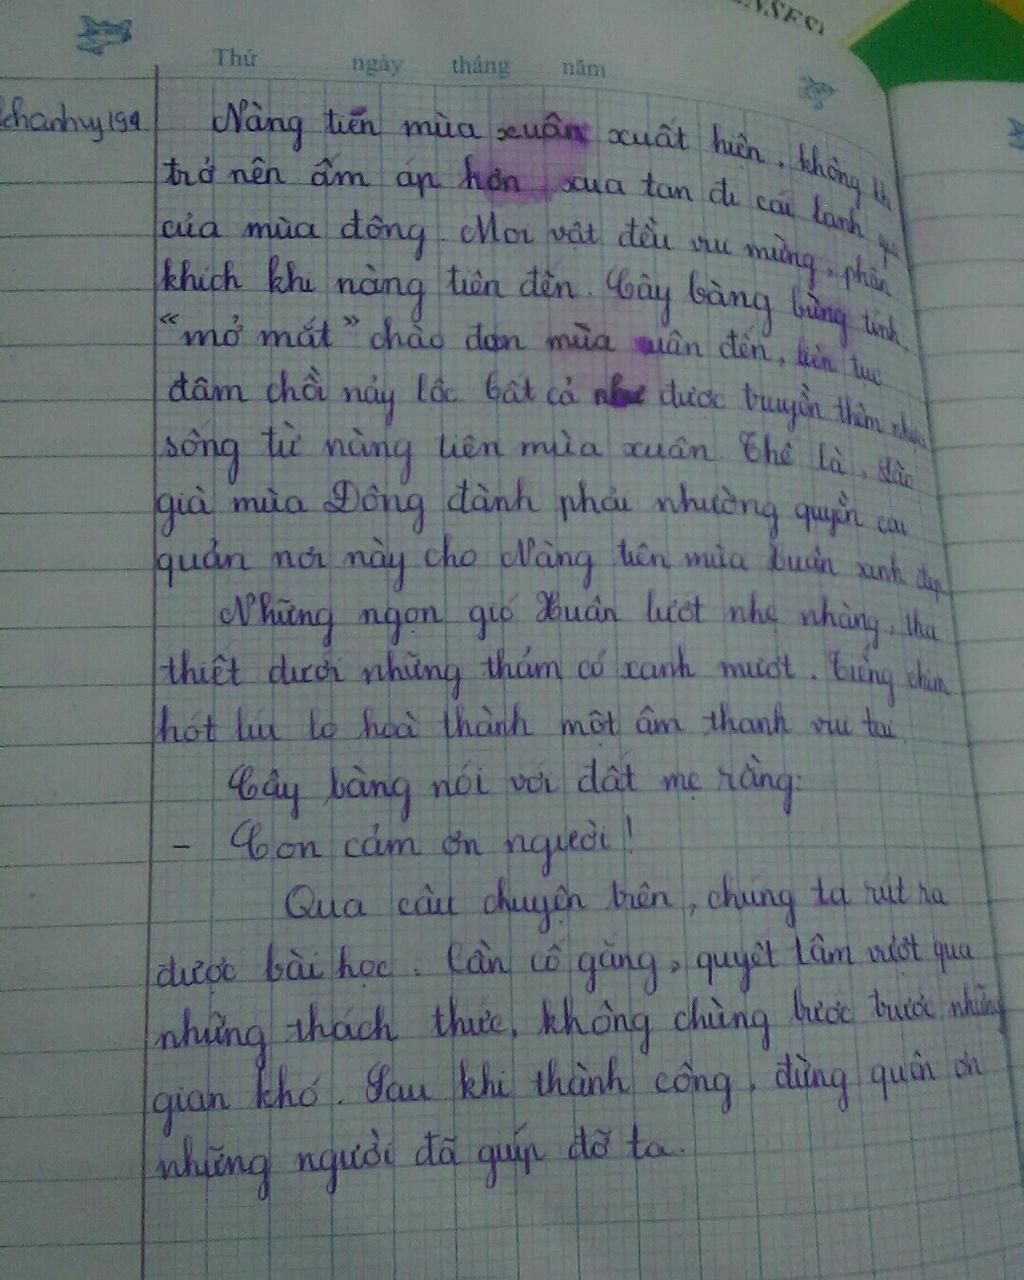 Thứ ngày tháng năm
khanhvy194
Nàng tiên mùa xuân xuất hiện, không khí
trở nên ấm áp hơn, xua tan đi cái lạnh
của mùa đông. Mọi vật đều vui mừng, phấn
khích khi nàng tiên đến. Cây bàng bừng tỉnh,
"mở mắt" chào đón mùa xuân đến, liên tục
đâm chồi nảy lộc. Cất cả như được truyền thêm nhựa
sống từ nàng tiên mùa xuân. Thế là, lão
già mùa Đông đành phải nhường quyền cai
quản nơi này cho Nàng tiên mùa xuân xinh đẹp
Những ngọn gió Xuân lướt nhẹ nhàng, tha
thiết dưới những thảm cỏ xanh mướt. Tiếng chim
hót líu lo hoà thành một âm thanh vui tai
Cây bàng nói với đất mẹ rằng:
- Con cảm ơn người!
Qua câu chuyện trên, chúng ta rút ra
được bài học. Cần cố gắng, quyết tâm vượt qua
những thách thức, không chùng bước trước những
gian khó. Sau khi thành công, đừng quên ơn
những người đã giúp đỡ ta.